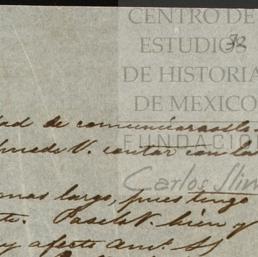 CENTRO DE
ESTUDIOS
DE HISTORIA
DE MEXICO
FUNDACIÓN
Carlos Slim
32
dad de comunicárselo
puede V. contar con la
mas largo, pues tengo
Páselo V. bien y
y afecto am.º